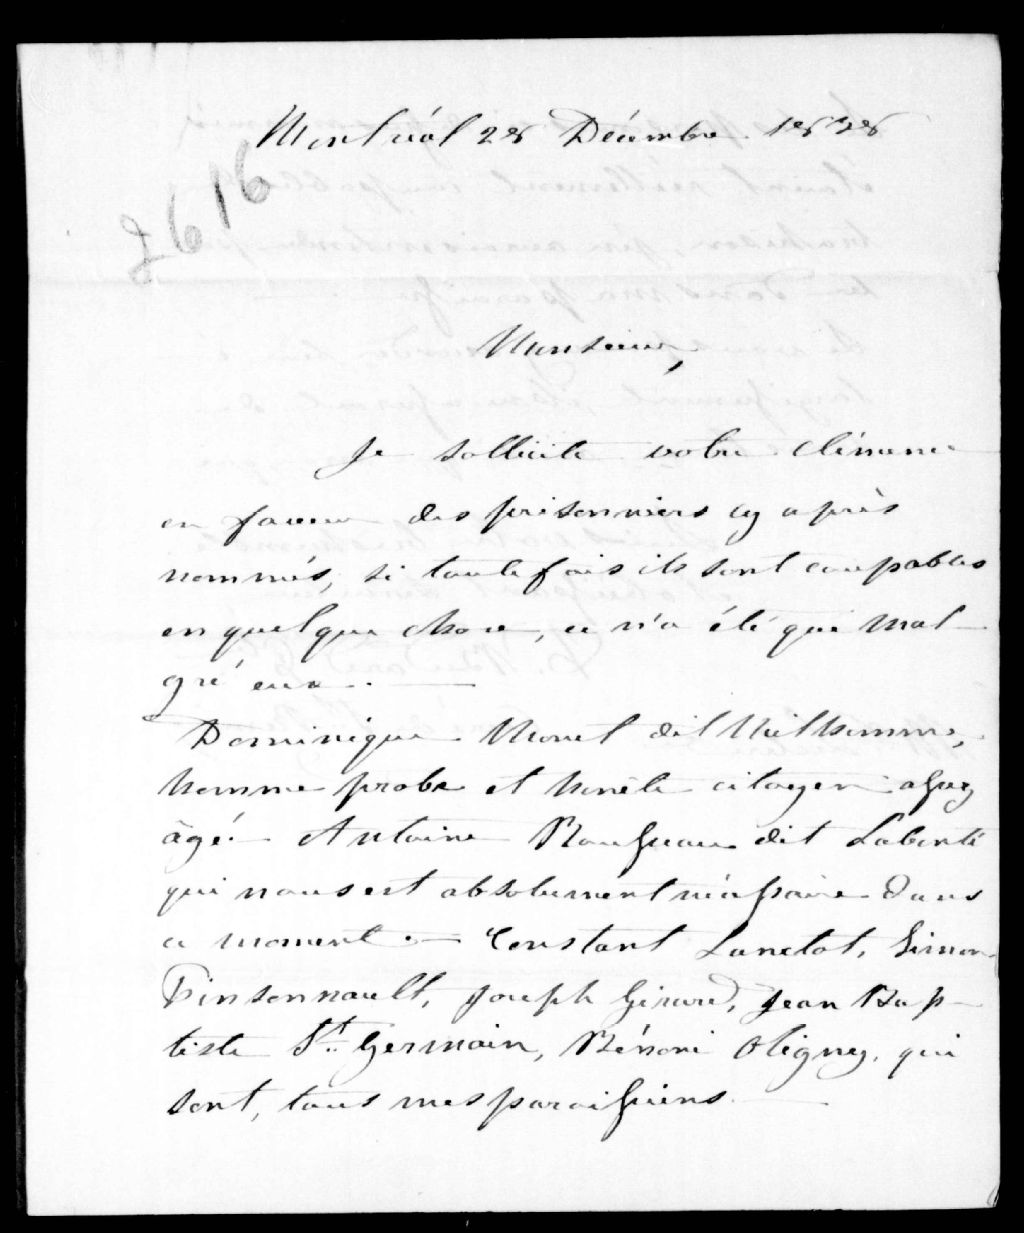 Montréal 28 Décembre 1838
2616
Monsieur,
Je sollicite votre clémence
en faveur des prisonniers cy après
nommés, si toute fois ils sont coupables
en quelque chose, ce n'a été que mal
gré eux.
Dominique Morel dit Milhomme,
homme probe et honête citoyen assez
âgé. Antoine Rousseau dit Labonté
qui nous est absolument nécessaire dans
ce moment. Constant Lanctot, Simon
Pinsonnault, Joseph Girard, Jean Bap
tiste St. Germain, Bénoni Oligny, qui
sont, tous mes paroissiens.